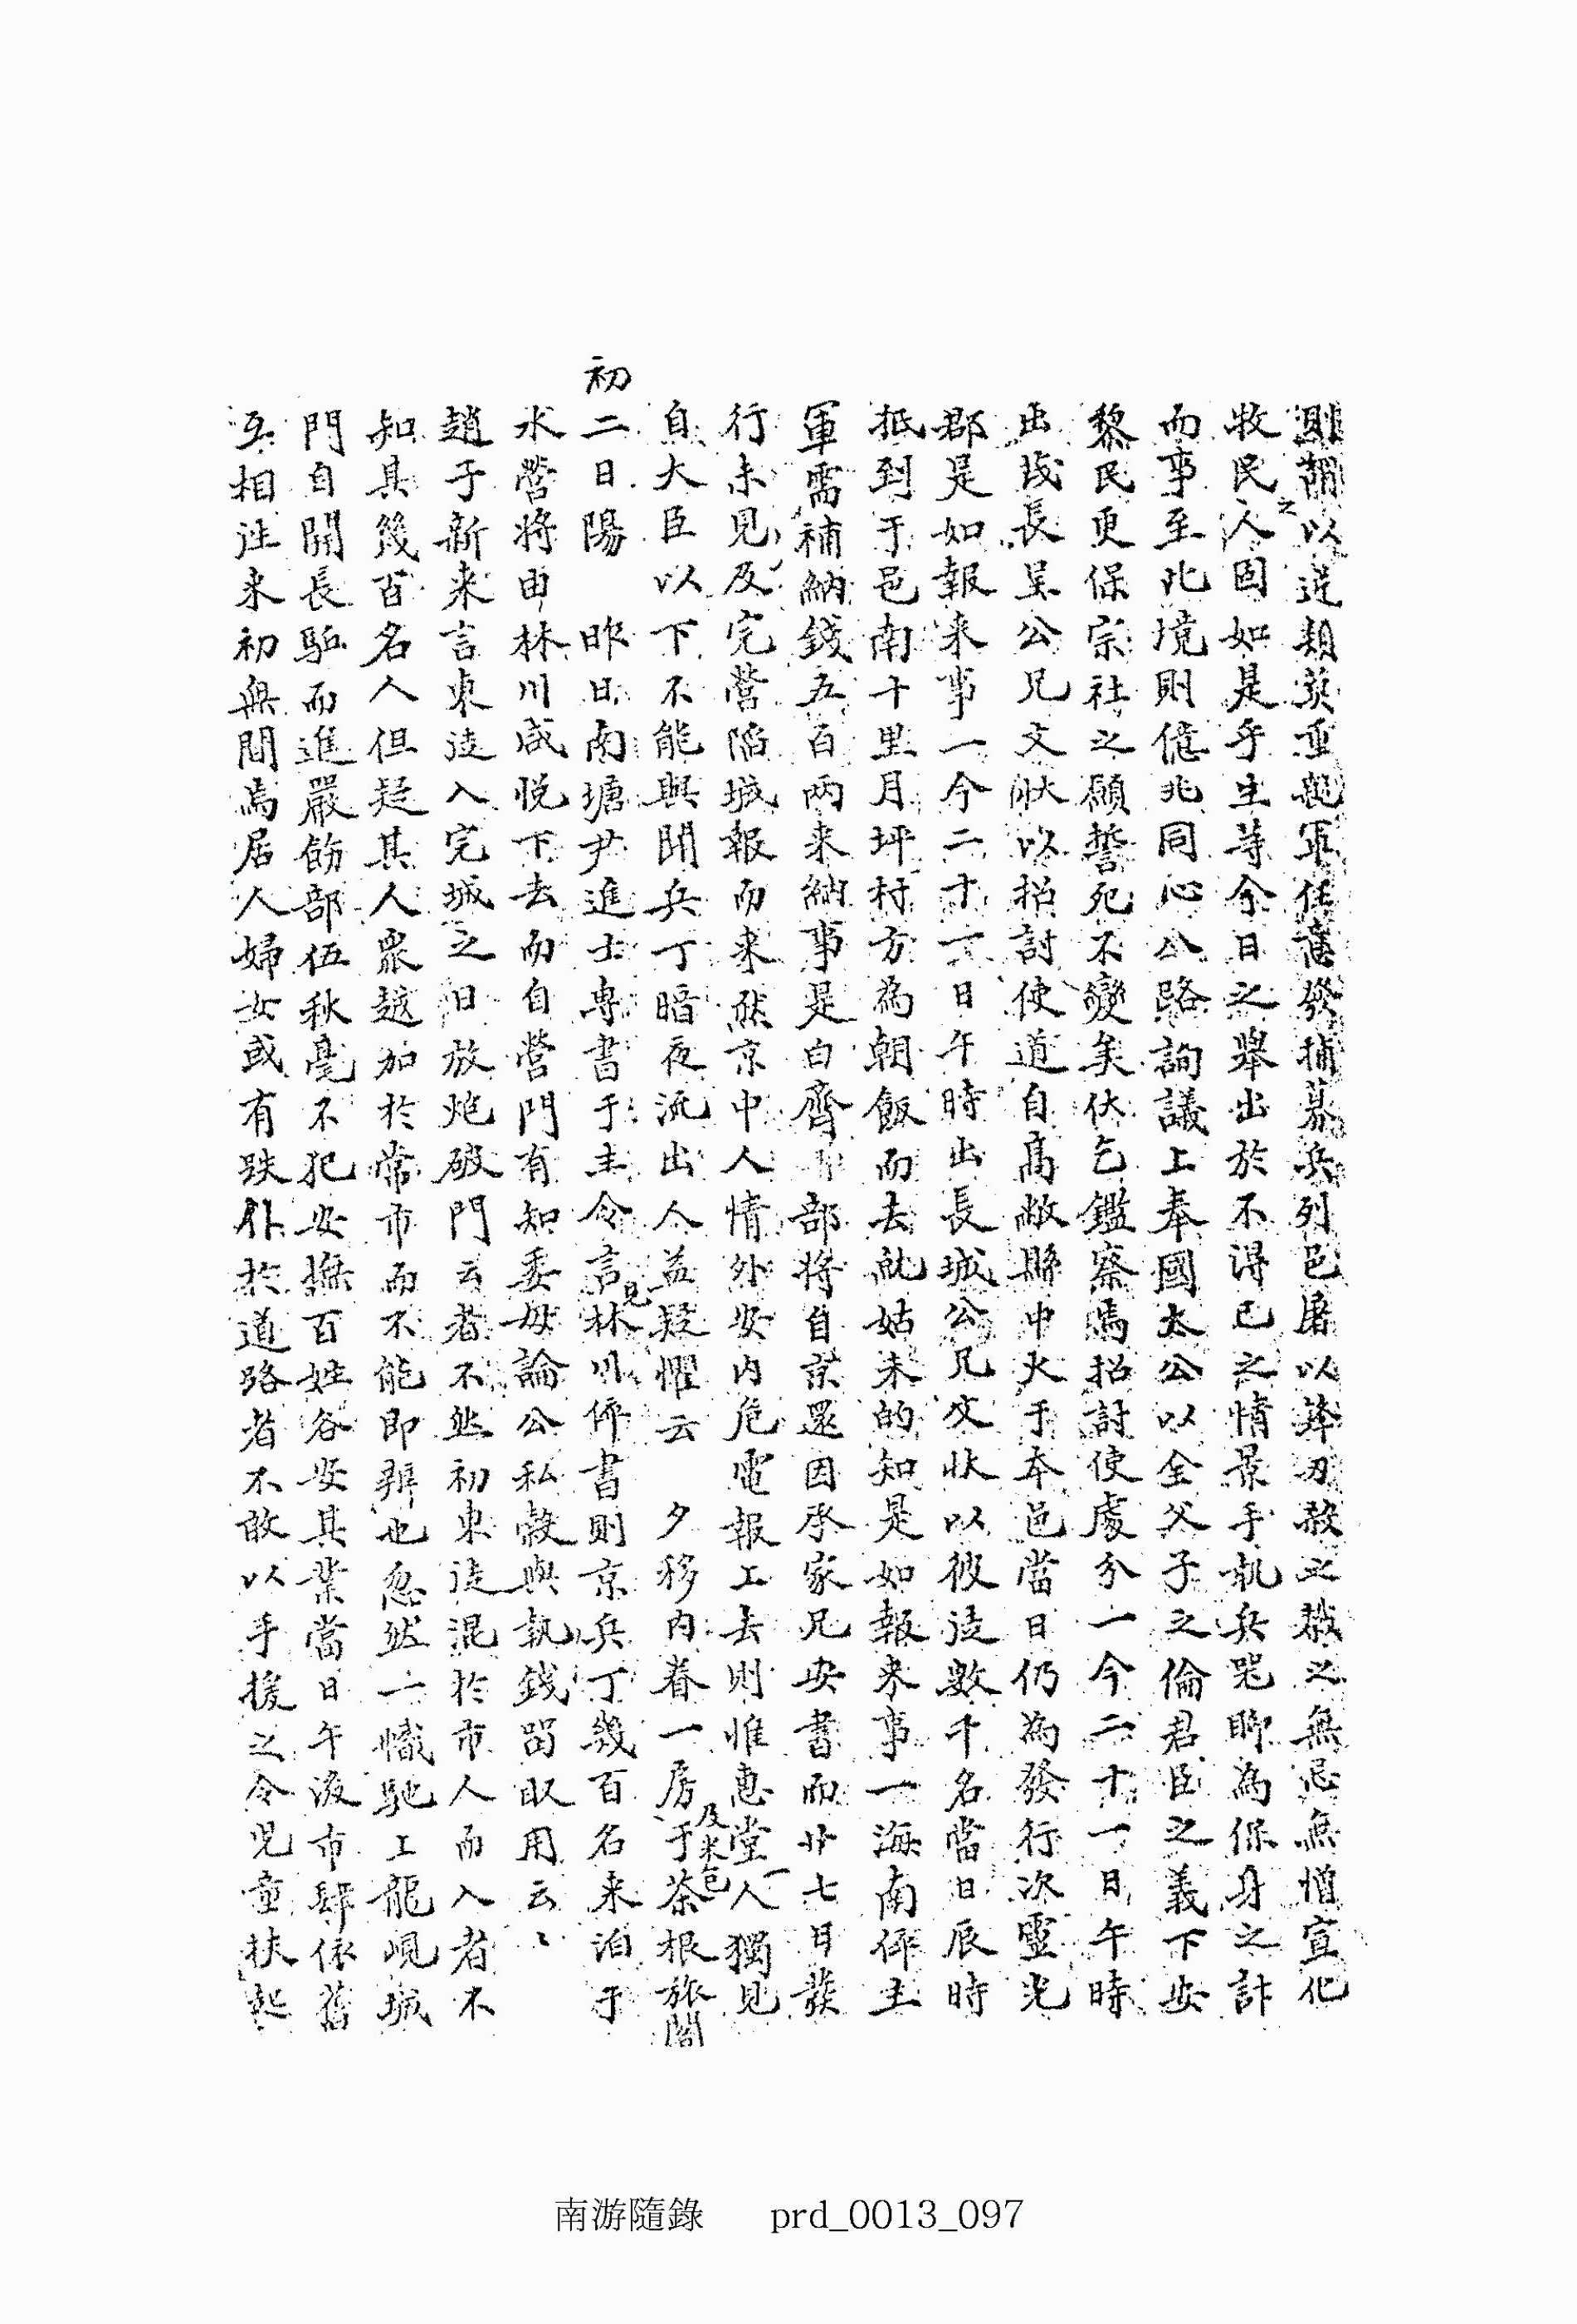 則謂以逆類萸重起軍任意發捕募兵列邑屠以鋒刃殺之戮之無忌無憎宣化
牧民之人固如是乎生等今日之擧出於不得已之情景手執兵咒聊為保身之計
而事至此境則億兆同心公路詢議上奉國太公以全父子之倫君臣之義下安
黎民更保宗社之願誓死不變矣伏乞鑑察焉招討使處分一今二十一日午時
出成長呈公兄文狀以招討使道自高敞縣中火于本邑當日仍為發行次靈光
郡是如報來事一今二十一日午時出長城公兄文狀以彼徒數千名當日辰時
抵到于邑南十里月坪村方為朝飯而去就姑未的知是如報來事一海南倅主
軍需補納錢五百兩來納事是白齊 部將自京還因承家兄安書而廿七日發
行未見及完營陷城報而來然京中人情外安内危電報上去則惟惠堂一人獨見
自大臣以下不能與聞兵丁暗夜流出人益疑懼云 夕移内眷一房及米包于茶根旅閣
初二日陽 昨日南塘尹進士專書于主令言見林川倅書則京兵丁幾百名来泊于
水營將由林川咸悅下去而自營門有知委毋論公私穀與執錢留取用云〻
趙于新来言東徒入完城之日放炮破門云者不然初東徒混於市人而入者不
知其幾百名人但疑其人衆越加於常市而不能即辨也忽然一幟馳上龍峴城
門自開長驅而進嚴飭部伍秋毫不犯安撫百姓各安其業當日午後市肆依舊
互相往来初無間焉居人婦女或有跌仆於道路者不敢以手援之令兒童扶起
南游隨錄 prd_0013_097